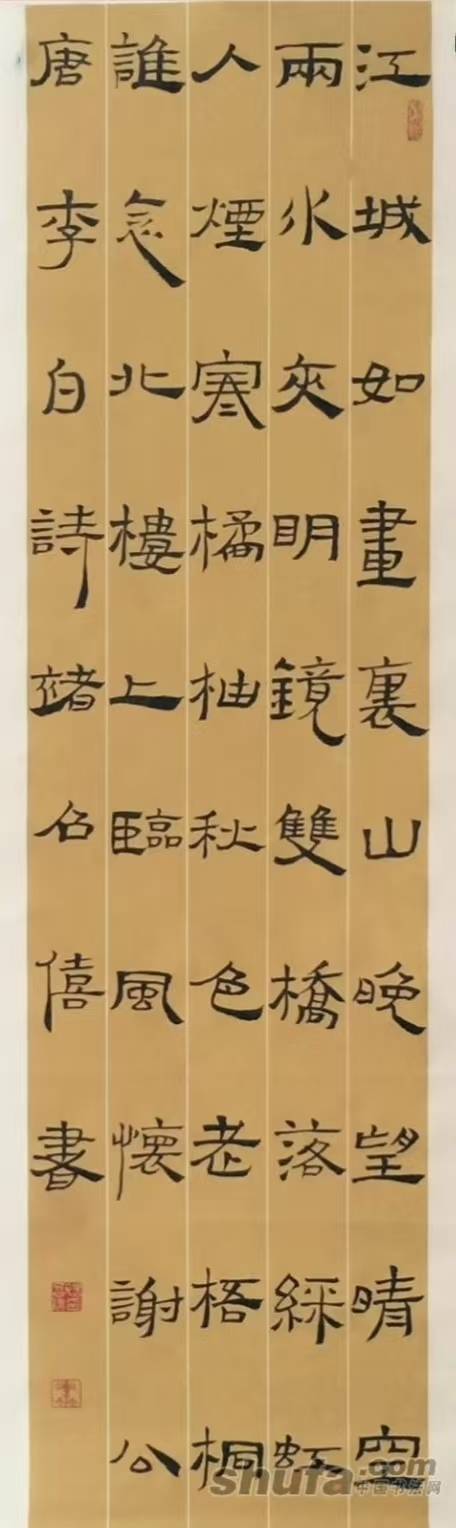 江城如畫裏山晚望晴空
兩水夾明鏡雙橋落綵虹
人煙寒橘柚秋色老梧桐
誰念北樓上臨風懷謝公
唐李白詩名僖書
shufa.com
中国书法网